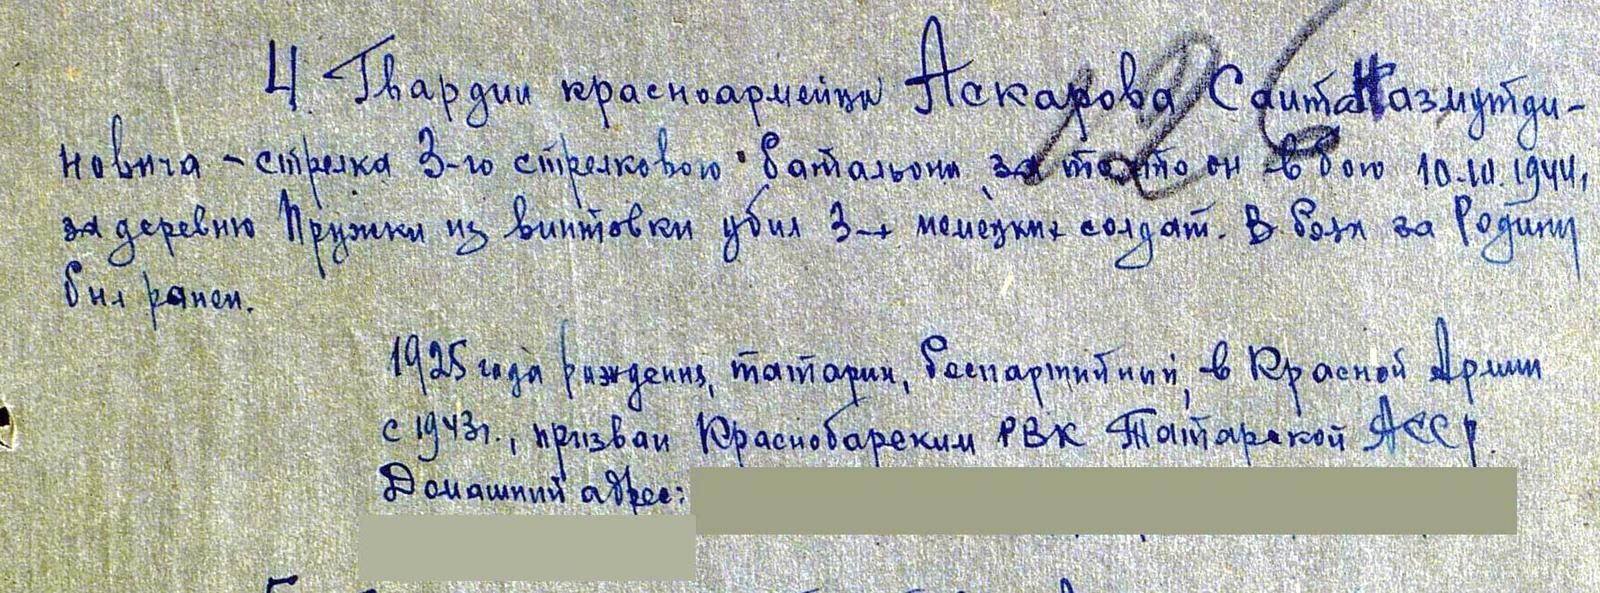 4. Гвардии красноармейца Аскарова Саита Назмутди-
новича - стрелка 3-го стрелкового батальона за то что он в бою 10.III.1944,
за деревню Пружки из винтовки убил 3-х немецких солдат. В боях за Родину
был ранен.
1925 года рождения, татарин, беспартийный, в Красной Армии
с 1943г., призван Краснобарским РВК Татарской АССР.
Домашний адрес: